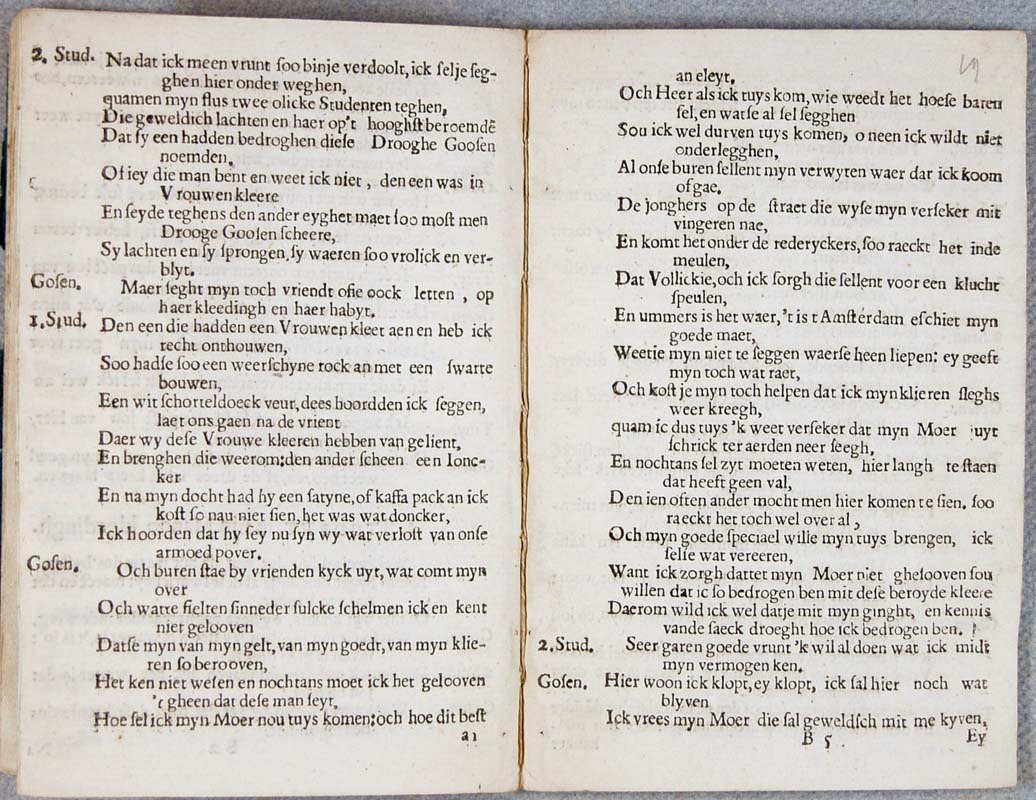 2. Stud. Na dat ick meen vrunt soo binje verdoolt, ick selje seg-
ghen hier onder weghen,
quamen myn flus twee olicke Studenten teghen,
Die geweldich lachten en haer op't hooghst beroemdē
Dat sy een hadden bedroghen diese Drooghe Goosen
noemden,
Of iey die man bent en weet ick niet, den een was in
Vrouwen kleere
En seyde teghens den ander eyghet maet soo most men
Drooge Goosen scheere,
Sy lachten en sy sprongen, sy waeren soo vrolick en ver-
blyt.
Gosen. Maer seght myn toch vriendt ofie oock letten, op
haer kleedingh en haer habyt.
1. Stud. Den een die hadden een Vrouwen kleet aen en heb ick
recht onthouwen,
Soo hadse soo een weerschyne rock an met een swarte
bouwen,
Een wit schorteldoeck veur, dees hoordden ick seggen,
laet ons gaen na de vrient
Daer wy dese Vrouwe kleeren hebben van gelient,
En brenghen die weerom: den ander scheen een Ionc-
ker
En na myn docht had hy een satyne, of kaffa pack an ick
kost so nau niet sien, het was wat doncker,
Ick hoorden dat hy sey nu syn wy wat verlost van onse
armoed pover.
Gosen. Och buren stae by vrienden kyck uyt, wat comt myn
over
Och watte fielten sinneder sulcke schelmen ick en kent
niet gelooven
Datse myn van myn gelt, van myn goedt, van myn klie-
ren so berooven,
Het ken niet wesen en nochtans moet ick het gelooven
't gheen dat dese man seyt.
Hoe sel ick myn Moer nou tuys komen: och hoe dit best
a1
19
an eleyt,
Och Heer als ick tuys kom, wie weedt het hoese baren
sel, en watse al sel segghen
Sou ick wel durven tuys komen, o neen ick wildt niet
onderlegghen,
Al onse buren sellent myn verwyten waer dar ick koom
of gae.
De jonghers op de straet die wyse myn verseker mit
vingeren nae,
En komt het onder de rederyckers, soo raeckt het inde
meulen,
Dat Vollickie, och ick sorgh die sellent voor een klucht
speulen,
En ummers is het waer, 't is t Amsterdam eschiet myn
goede maet,
Weetie myn niet te seggen waerse heen liepen: ey geeft
myn toch wat raet,
Och kost je myn toch helpen dat ick myn klieren sleghs
weer kreegh,
quam ic dus tuys 'k weet verseker dat myn Moer uyt
schrick ter aerden neer seegh,
En nochtans sel zyt moeten weten, hier langh te staen
dat heeft geen val,
Den ien often ander mocht men hier komen te sien. soo
raeckt het toch wel over al,
Och myn goede speciael wilie myn tuys brengen, ick
selse wat vereeren,
Want ick zorgh dattet myn Moer niet ghelooven sou
willen dat ic so bedrogen ben mit dese beroyde kleere
Daerom wild ick wel datje mit myn ginght, en kennis
vande saeck droeght hoe ick bedrogen ben.
2. Stud. Seer garen goede vrunt 'k wil al doen wat ick midt
myn vermogen ken.
Gosen. Hier woon ick klopt, ey klopt, ick sal hier noch wat
blyven
Ick vrees myn Moer die sal geweldsch mit me kyven,
B 5 Ey